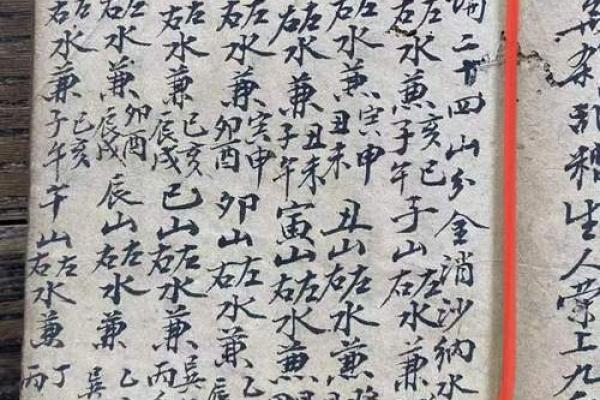 生人工九
二十四山分金消沙納水
左右水兼亥巳子午子山左右水兼
左右水兼寅申丑未丑山左右水兼
左右水兼丑未子午寅山左右水兼
左右水兼寅申卯酉卯山左右水兼乙辰
左右水兼巳亥辰戌巳山左右水兼巽丙
左右水兼卯酉辰戌辰山左右水兼乙巽
左右水兼巳亥子午午山左右水兼丁丙